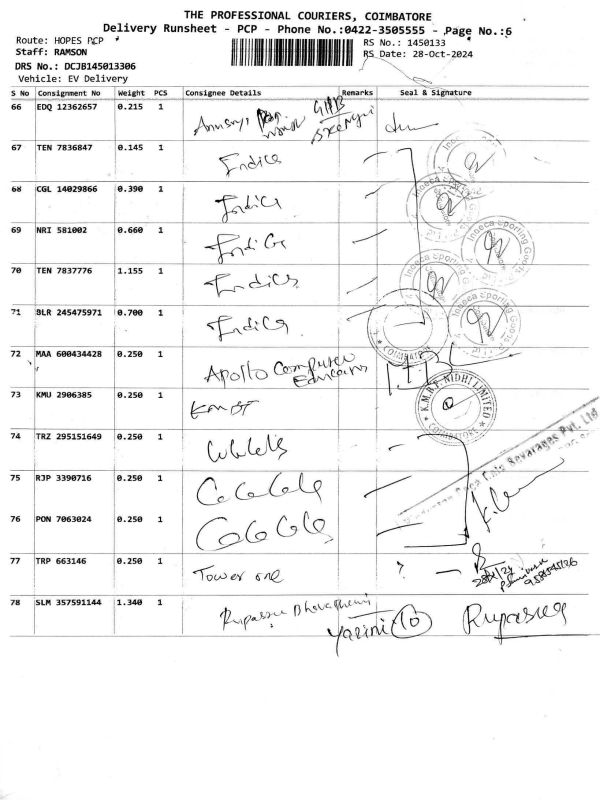 THE PROFESSIONAL COURIERS, COIMBATORE
Delivery Runsheet - PCP - Phone No.:0422-3505555 - Page No.:6
Route: HOPES PCP
RS No.: 1450133
Staff: RAMSON
RS Date: 28-Oct-2024
DRS No.: DCJB145013306
Vehicle: EV Delivery
S No Consignment No Weight PCS Consignee Details Remarks Seal & Signature
66 EDQ 12362657 0.215 1
67 TEN 7836847 0.145 1 Indica
68 CGL 14029866 0.390 1 Indica
69 NRI 581002 0.660 1 Indica
70 TEN 7837776 1.155 1 Indica
71 BLR 245475971 0.700 1 Indica
72 MAA 600434428 0.250 1 Apollo Computer
73 KMU 2906385 0.250 1
74 TRZ 295151649 0.250 1
75 RJP 3390716 0.250 1
76 PON 7063024 0.250 1
77 TRP 663146 0.250 1 Tower one ?
78 SLM 357591144 1.340 1
Indeca Sporting Goods
COIMBATORE
K.M.B.F. NIDHI LIMITED
COIMBATORE
Beverages Pvt. Ltd